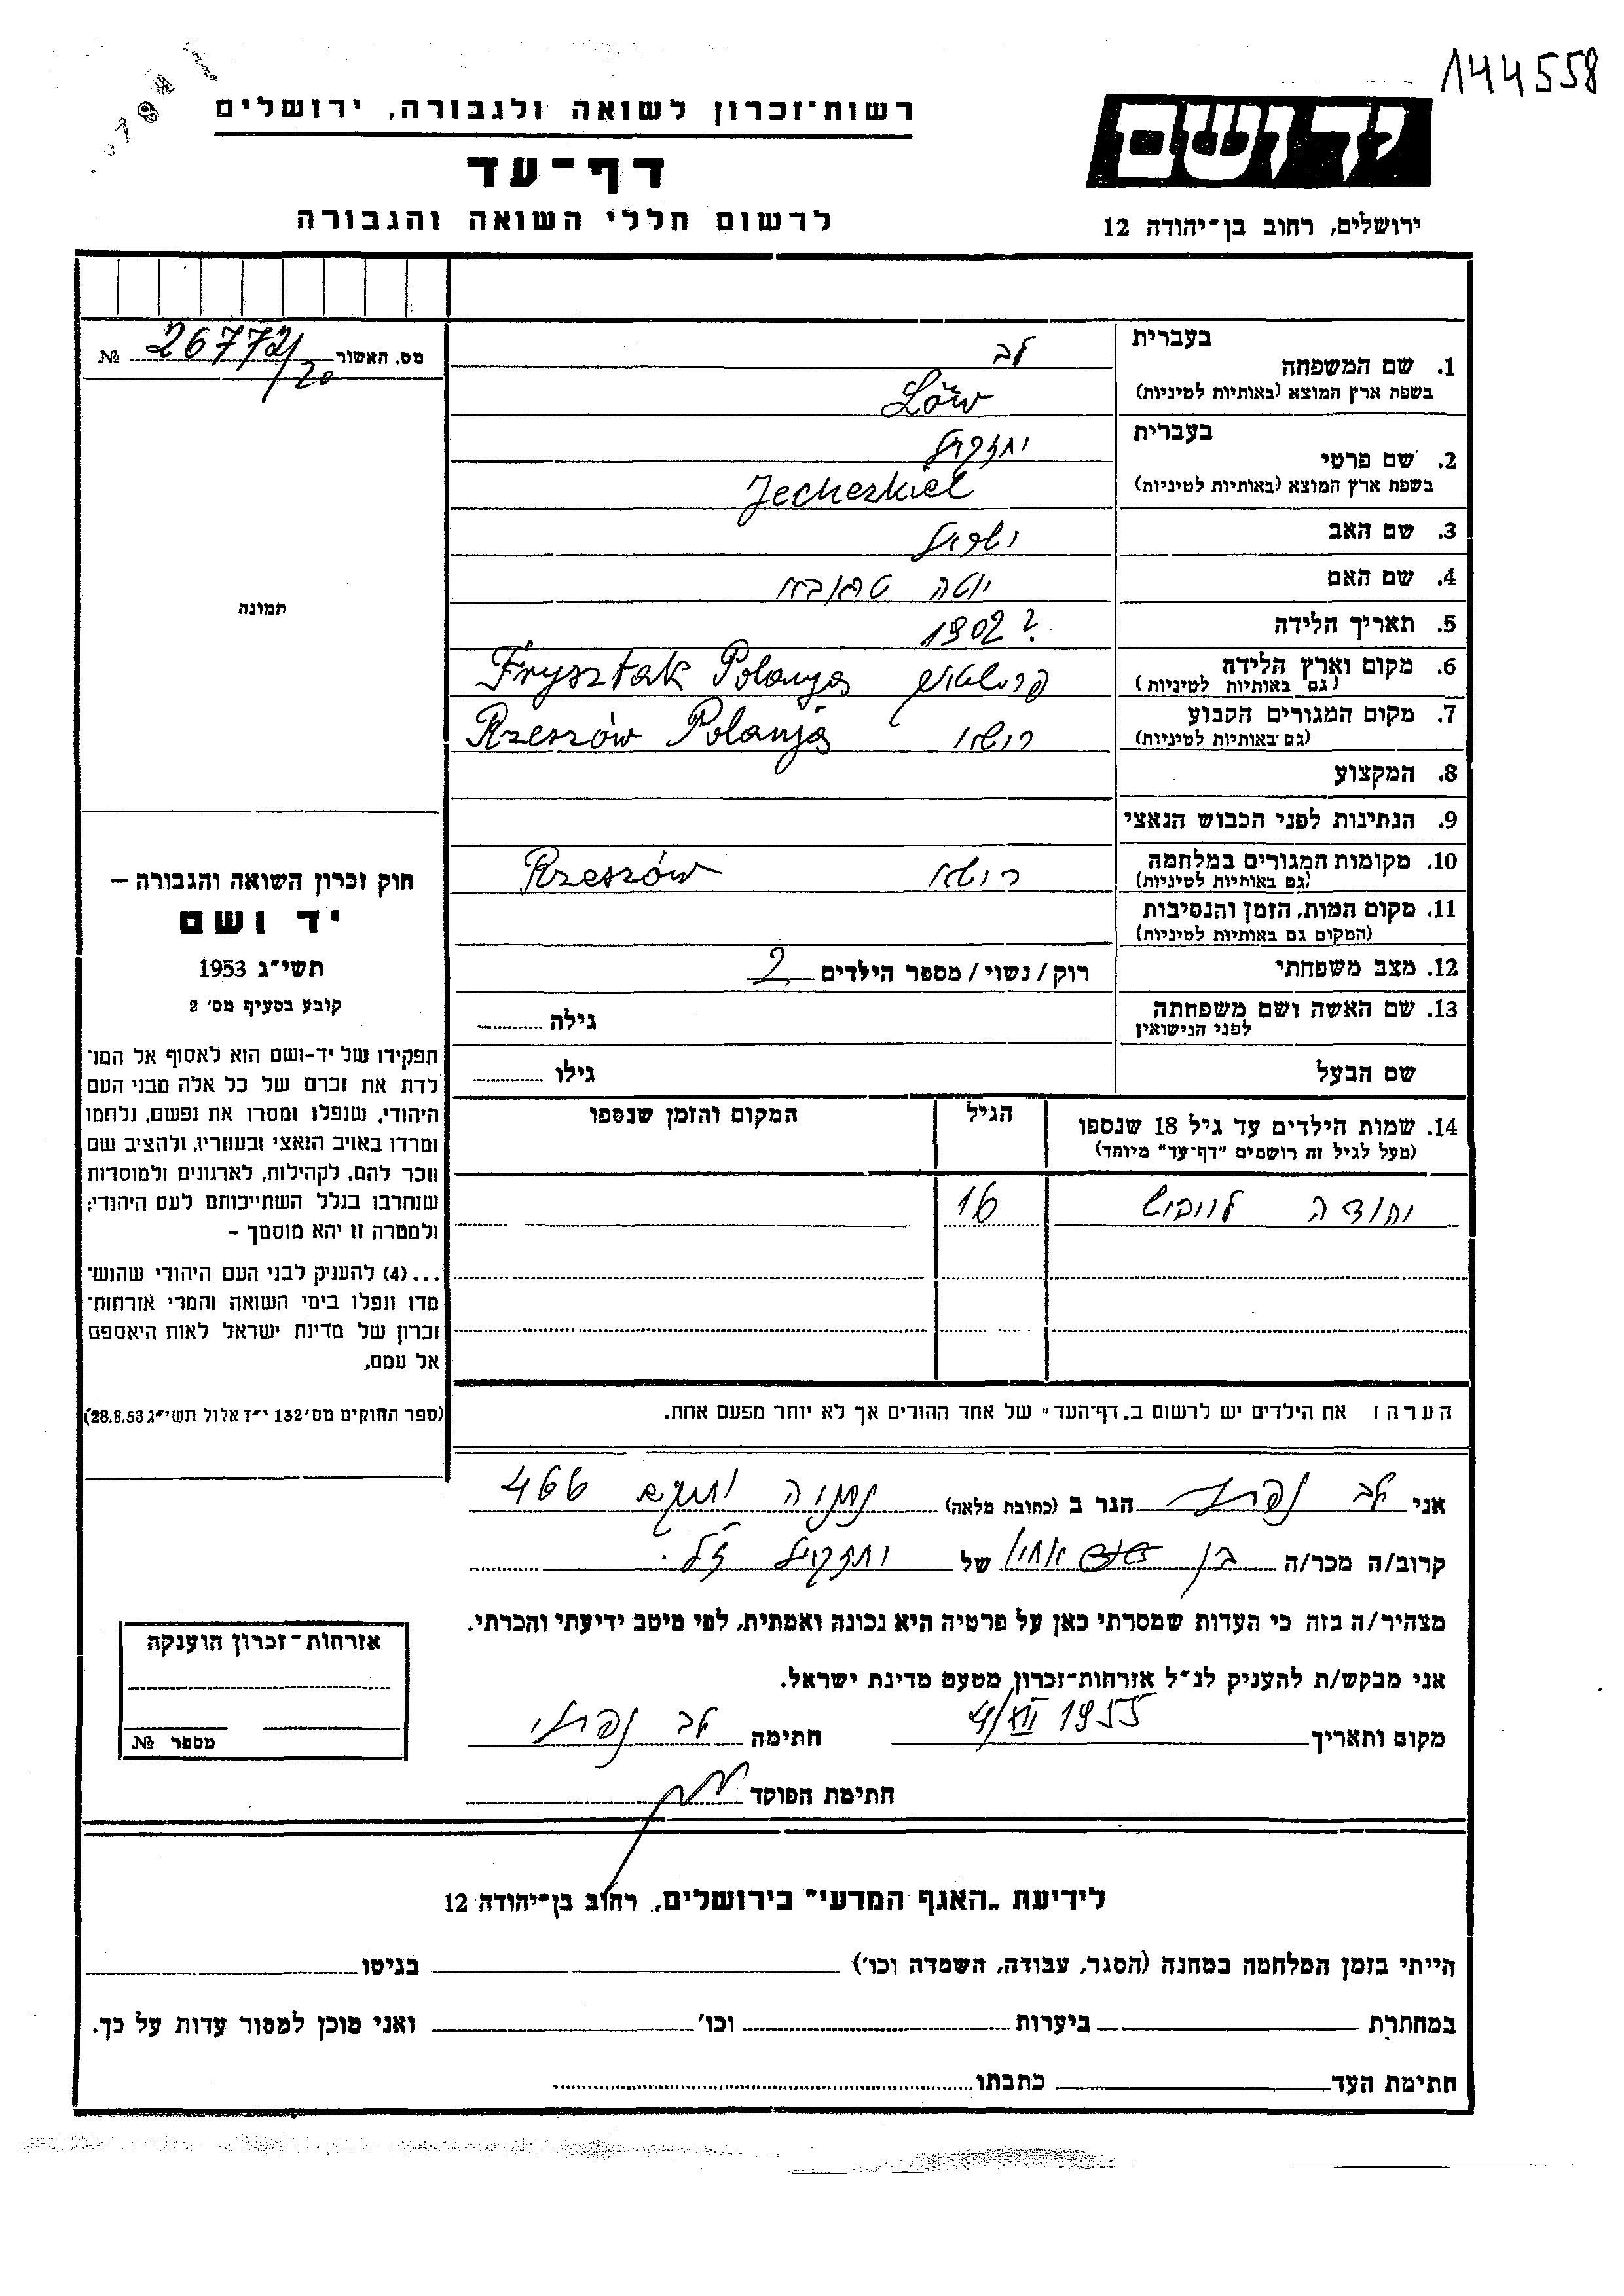 144558
רשות־זכרון לשואה ולגבורה, ירושלים
יד ושם
דף־עד
לרשום חללי השואה והגבורה
ירושלים, רחוב בן־יהודה 12
מס. האשור № 26772/20
תמונה
1. שם המשפחה בעברית לב
בשפת ארץ המוצא (באותיות לטיניות) Löw
2. שם פרטי בעברית יחזקאל
בשפת ארץ המוצא (באותיות לטיניות) Jecheskiel
3. שם האב ישראל
4. שם האם יוטה
5. תאריך הלידה 1902 ?
6. מקום וארץ הלידה Frysztak Polanja
(גם באותיות לטיניות)
7. מקום המגורים הקבוע רישא Rzeszów Polanja
(גם באותיות לטיניות)
8. המקצוע
9. הנתינות לפני הכבוש הנאצי
10. מקומות המגורים במלחמה רישא Rzeszów
(גם באותיות לטיניות)
11. מקום המות, הזמן והנסיבות
(המקום גם באותיות לטיניות)
12. מצב משפחתי רוק/נשוי/מספר הילדים 2
13. שם האשה ושם משפחתה גילה
לפני הנישואין
שם הבעל גילו
14. שמות הילדים עד גיל 18 שנספו הגיל המקום והזמן שנספו
(מעל לגיל זה רושמים "דף־עד" מיוחד)
יהודה 16
הערה: את הילדים יש לרשום ב„דף־העד" של אחד ההורים אך לא יותר מפעם אחת.
חוק זכרון השואה והגבורה –
יד ושם
תשי"ג 1953
קובע בסעיף מס' 2
תפקידו של יד-ושם הוא לאסוף אל המו־
לדת את זכרם של כל אלה מבני העם
היהודי, שנפלו ומסרו את נפשם, נלחמו
ומרדו באויב הנאצי ובעוזריו, ולהציב שם
וזכר להם, לקהילות, לארגונים ולמוסדות
שנחרבו בגלל השתייכותם לעם היהודי;
ולמטרה זו יהא מוסמך –
...(4) להעניק לבני העם היהודי שהוש־
מדו ונפלו בימי השואה והמרי אזרחות־
זכרון של מדינת ישראל לאות היאספם
אל עמם.
(ספר החוקים מס' 132 י"ז אלול תשי"ג 28.8.53)
אני לב נפתלי הגר ב (כתובת מלאה) נתניה 466
קרוב/ה מכר/ה בן אחיו של יחזקאל ז"ל.
מצהיר/ה בזה כי העדות שמסרתי כאן על פרטיה היא נכונה ואמתית, לפי מיטב ידיעתי והכרתי.
אני מבקש/ת להעניק לנ"ל אזרחות־זכרון מטעם מדינת ישראל.
מקום ותאריך 4/XII 1955 חתימה לב נפתלי
חתימת הפוקד
אזרחות־זכרון הוענקה
מספר №
לידיעת „האגף המדעי" בירושלים, רחוב בן־יהודה 12
הייתי בזמן המלחמה במחנה (הסגר, עבודה, השמדה וכו') בגיטו
במחתרת ביערות וכו' ואני מוכן למסור עדות על כך.
חתימת העד כתבתו